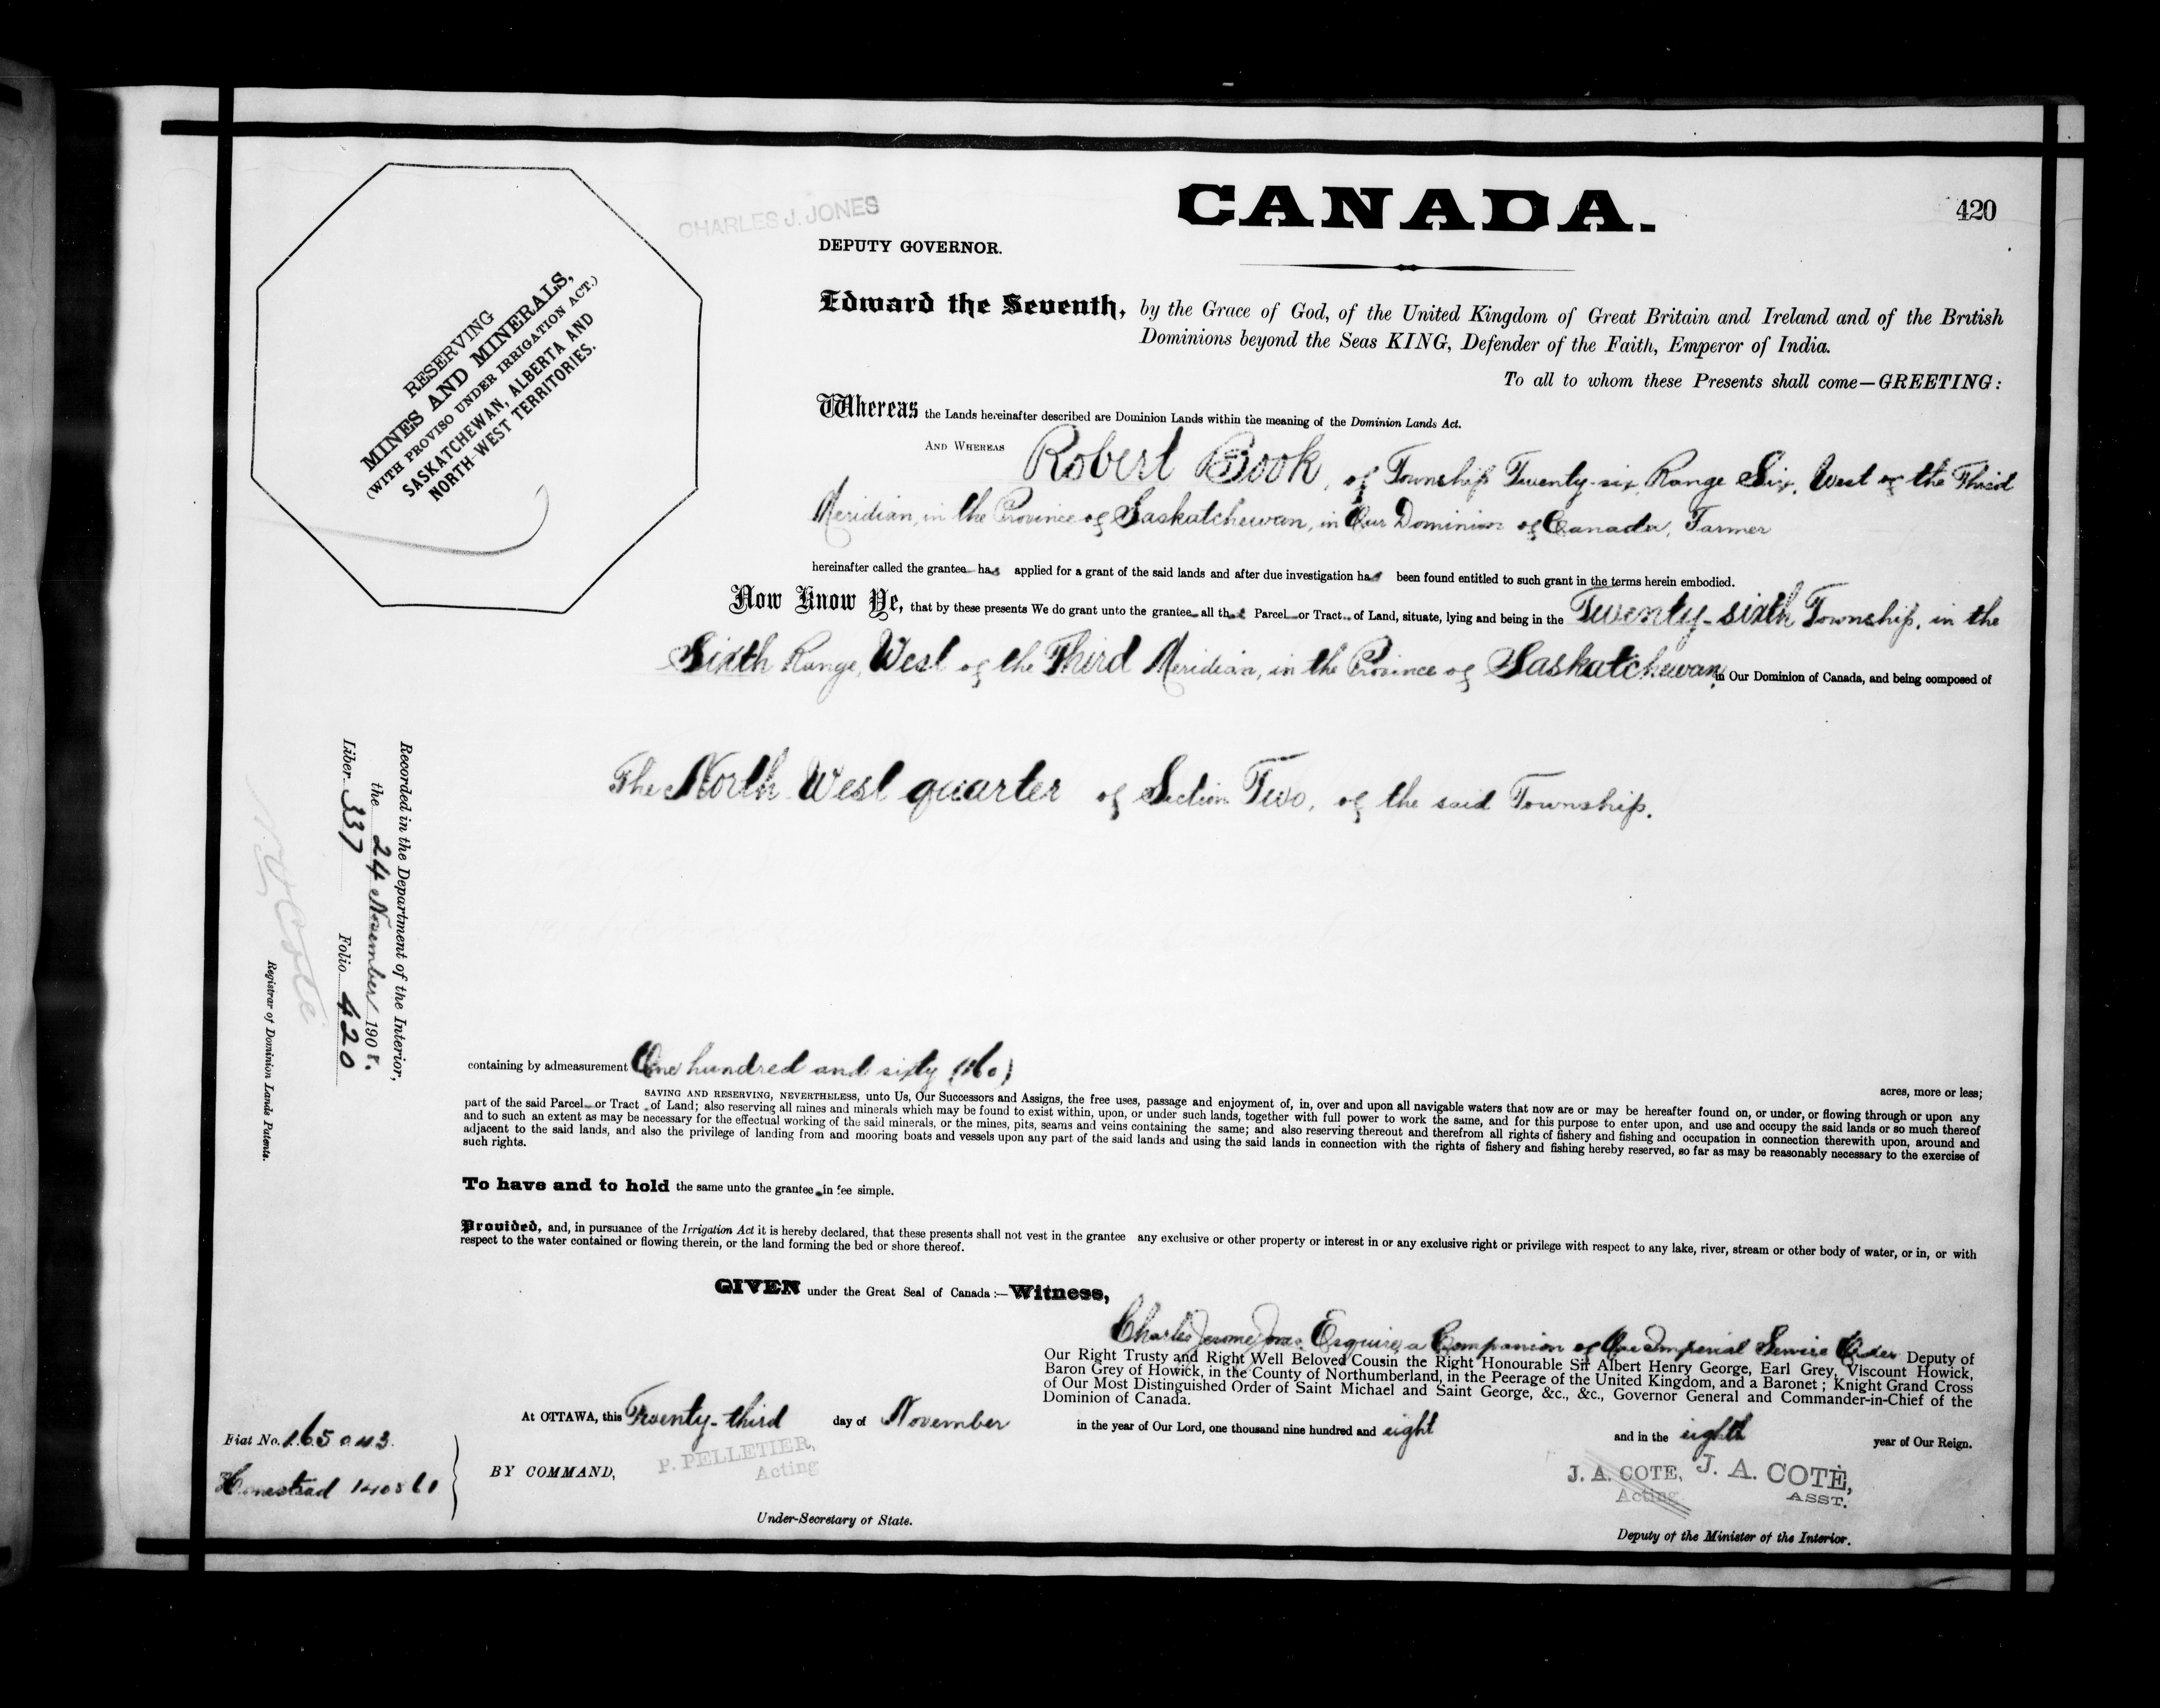 CANADA.
420
CHARLES J. JONES
DEPUTY GOVERNOR.
RESERVING
MINES AND MINERALS,
(WITH PROVISO UNDER IRRIGATION ACT.)
SASKATCHEWAN, ALBERTA AND
NORTH-WEST TERRITORIES.
Edward the Seventh, by the Grace of God, of the United Kingdom of Great Britain and Ireland and of the British
Dominions beyond the Seas KING, Defender of the Faith, Emperor of India.
To all to whom these Presents shall come—GREETING:
Whereas the Lands hereinafter described are Dominion Lands within the meaning of the Dominion Lands Act.
AND WHEREAS Robert Book, of Township Twenty-six, Range Six, West of the Third
Meridian, in the Province of Saskatchewan, in Our Dominion of Canada, Farmer
hereinafter called the grantee has applied for a grant of the said lands and after due investigation has been found entitled to such grant in the terms herein embodied.
Now Know Ye, that by these presents We do grant unto the grantee all that Parcel or Tract of Land, situate, lying and being in the Twenty-sixth Township, in the
Sixth Range, West of the Third Meridian, in the Province of Saskatchewan, in Our Dominion of Canada, and being composed of
The North West quarter of Section Two, of the said Township.
Recorded in the Department of the Interior,
the 24 November 1908.
Liber 337 Folio 420
N. O. Coté
Registrar of Dominion Lands Patents.
containing by admeasurement One hundred and sixty (160)
acres, more or less;
SAVING AND RESERVING, NEVERTHELESS, unto Us, Our Successors and Assigns, the free uses, passage and enjoyment of, in, over and upon all navigable waters that now are or may be hereafter found on, or under, or flowing through or upon any
part of the said Parcel or Tract of Land; also reserving all mines and minerals which may be found to exist within, upon, or under such lands, together with full power to work the same, and for this purpose to enter upon, and use and occupy the said lands or so much thereof
and to such an extent as may be necessary for the effectual working of the said minerals, or the mines, pits, seams and veins containing the same; and also reserving thereout and therefrom all rights of fishery and fishing and occupation in connection therewith upon, around and
adjacent to the said lands, and also the privilege of landing from and mooring boats and vessels upon any part of the said lands and using the said lands in connection with the rights of fishery and fishing hereby reserved, so far as may be reasonably necessary to the exercise of
such rights.
To have and to hold the same unto the grantee in fee simple.
Provided, and, in pursuance of the Irrigation Act it is hereby declared, that these presents shall not vest in the grantee any exclusive or other property or interest in or any exclusive right or privilege with respect to any lake, river, stream or other body of water, or in, or with
respect to the water contained or flowing therein, or the land forming the bed or shore thereof.
GIVEN under the Great Seal of Canada:—Witness,
Charles Jerome Jones Esquire, a Companion of Our Imperial Service Order Deputy of
Our Right Trusty and Right Well Beloved Cousin the Right Honourable Sir Albert Henry George, Earl Grey, Viscount Howick,
Baron Grey of Howick, in the County of Northumberland, in the Peerage of the United Kingdom, and a Baronet; Knight Grand Cross
of Our Most Distinguished Order of Saint Michael and Saint George, &c., &c., Governor General and Commander-in-Chief of the
Dominion of Canada.
At OTTAWA, this Twenty-third day of November in the year of Our Lord, one thousand nine hundred and eight and in the eighth year of Our Reign.
Fiat No. 165043.
Homestead 140861
BY COMMAND,
P. PELLETIER,
Acting
Under-Secretary of State.
J. A. COTE,
Acting
J. A. COTÉ,
ASST.
Deputy of the Minister of the Interior.